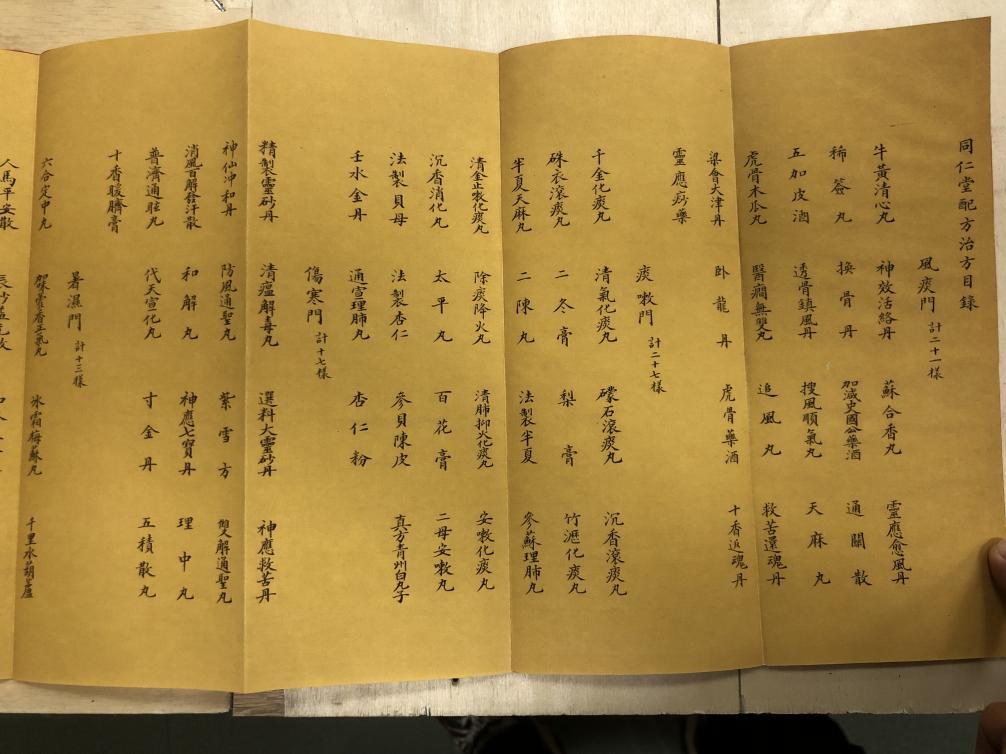 同仁堂配方治方目錄
風痰門 計二十一様
牛黃清心丸 神效活絡丹 蘇合香丸 靈應愈風丹
稀莶丸 換骨丹 加減史國公藥酒 通關散
五加皮酒 透骨鎮風丹 搜風順氣丸 天麻丸
虎骨木瓜丸 醫癇無雙丸 追風丸 救苦還魂丹
梁會大津丹 臥龍丹 虎骨藥酒 十香返魂丹
靈應痧藥
痰嗽門 計二十七様
千金化痰丸 清氣化痰丸 礞石滾痰丸 沉香滾痰丸
硃衣滾痰丸 二冬膏 梨膏 竹瀝化痰丸
半夏天麻丸 二陳丸 法製半夏 參蘇理肺丸
清金止嗽化痰丸 除痰降火丸 清肺抑火化痰丸 安嗽化痰丸
沉香消化丸 太平丸 百花膏 二母安嗽丸
法製貝母 法製杏仁 參貝陳皮 真方青州白丸子
壬水金丹 通宣理肺丸 杏仁粉
傷寒門 計十七様
精製靈砂丹 清瘟解毒丸 選料大靈砂丹 神應救苦丹
神仙沖和丹 防風通聖丸 紫雪方 雙解通聖丸
消風百解發汗散 和解丸 神應七寶丹 理中丸
普濟通眩丸 代天宣化丸 寸金丹 五積散丸
十香暖臍膏
暑濕門 計十三様
六合定中丸 藿香正氣丸 冰霜梅蘇丸 千里水葫蘆
人馬平安散